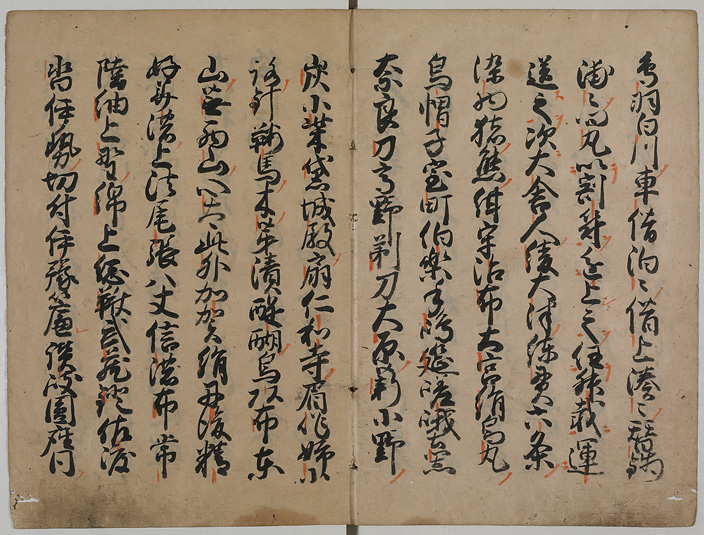 鳥羽白川車借泊々借上湊々替銭
浦々問丸以割符進上之任俶載運
送之次大舎人綾大津練貫六条
染物猪熊紺宇治布大宮絹烏丸
烏帽子室町伯樂手嶋筵嵯峨土器
奈良刀高野剃刀大原薪小野
炭小柴黛城殿扇仁和寺眉作姉小
路針鞍馬木芽漬醍醐烏頭布東
山蕪西山心太此外加賀絹丹後精
好美濃上品尾張八丈信濃布常
陸紬上野綿上総鞦武蔵鐙佐渡
沓伊勢切付伊豫簾讃岐圓座同